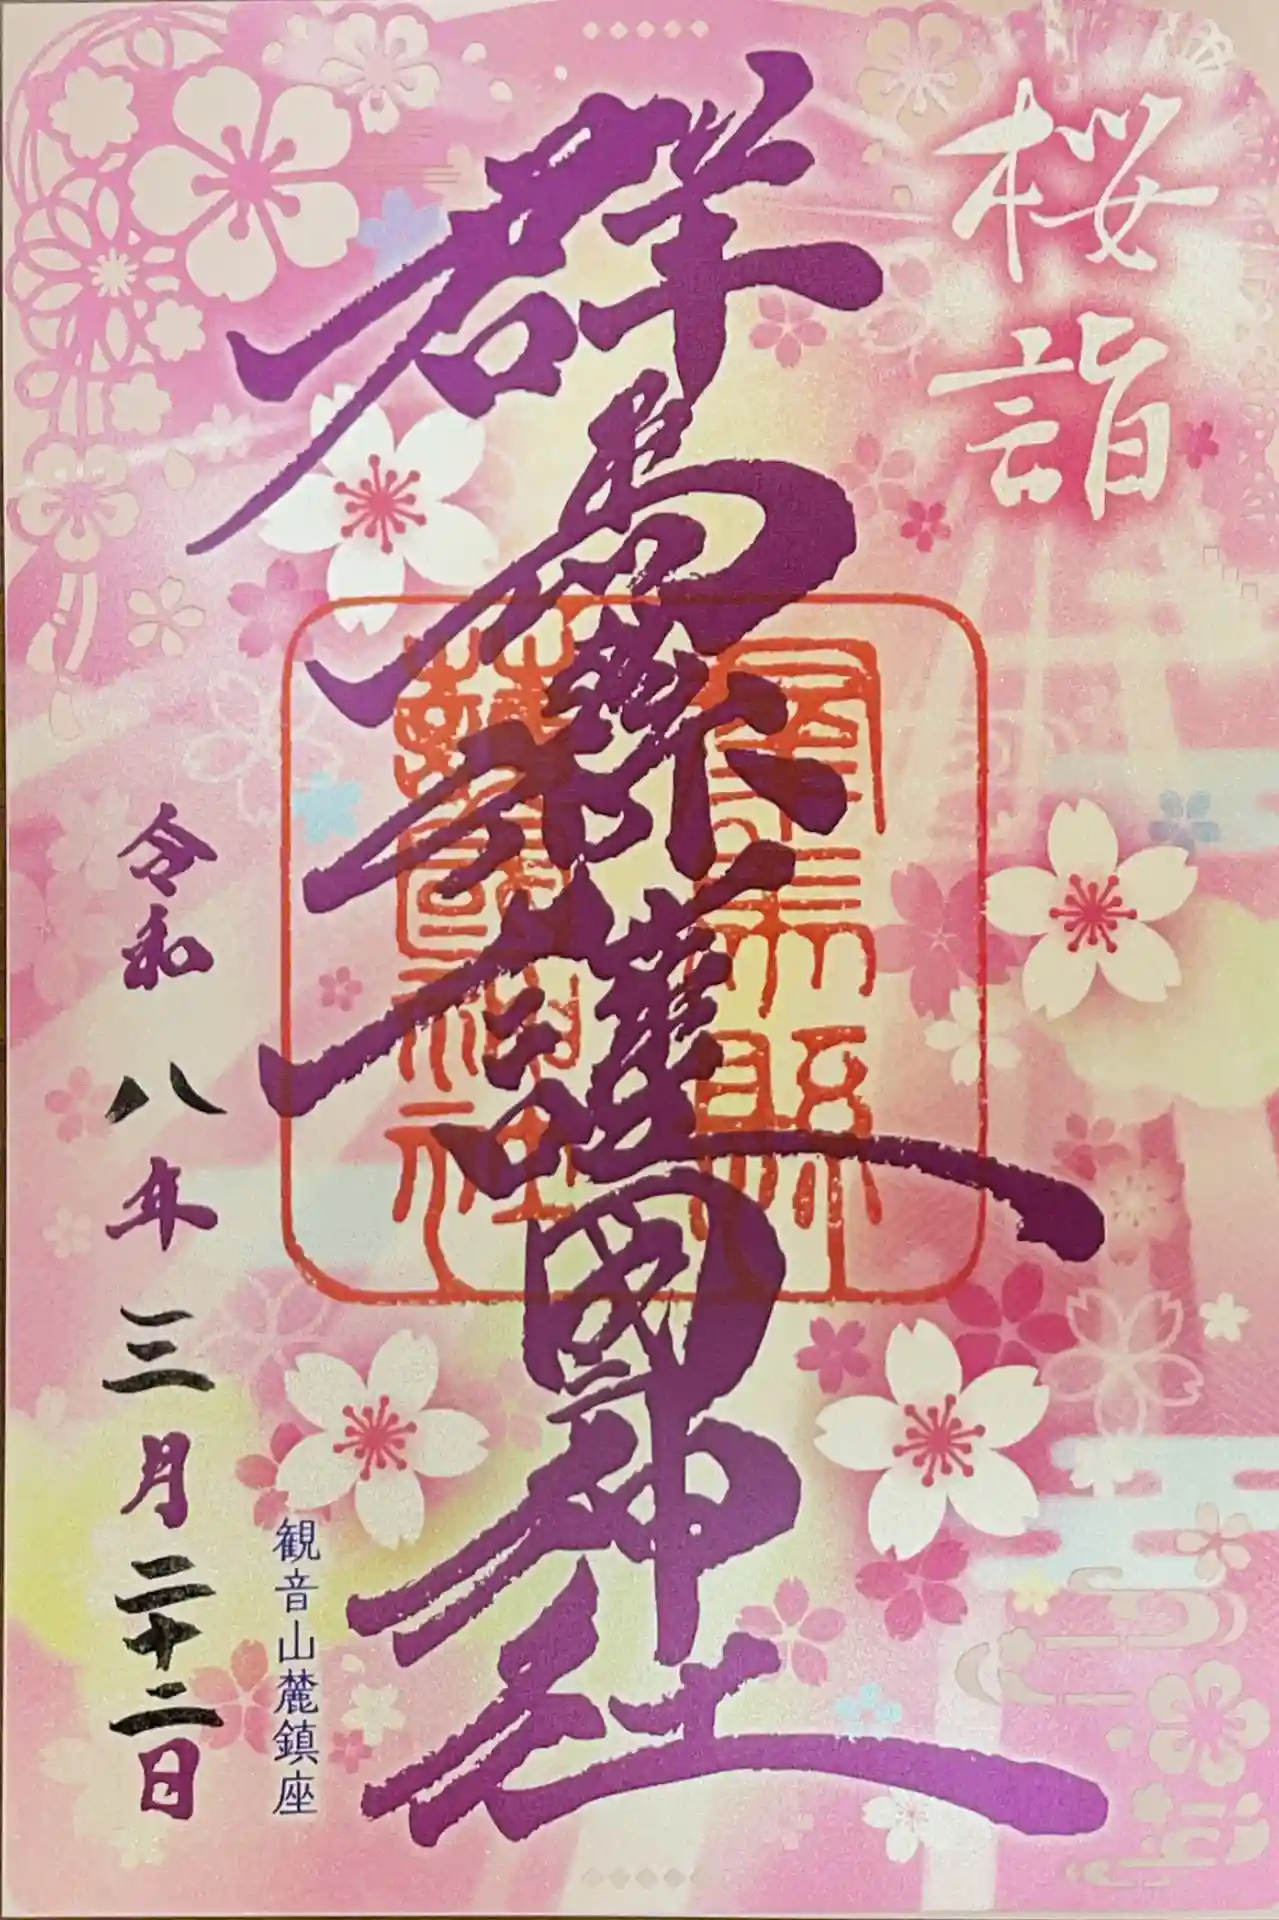 桜詣
群馬縣護國神社
群馬縣
護國神社
観音山麓鎮座
令和八年三月二十二日